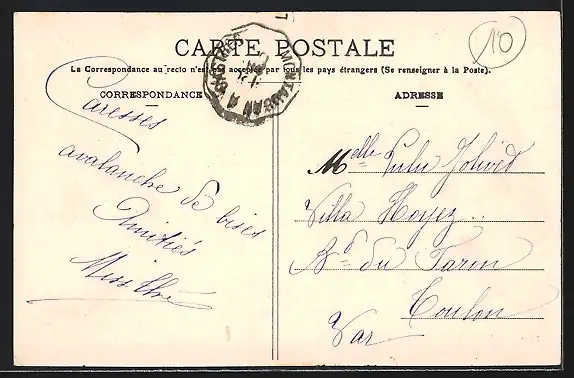 10
CARTE POSTALE
La Correspondance au recto n'est pas acceptée par tous les pays étrangers (Se renseigner à la Poste).
CORRESPONDANCE
ADRESSE
MONTAUBAN A
Caresses
avalanche de bises
Amitiés
Miss
Melle Lulu Jolived
Villa Noyez..
Bd du Faron
Toulon
Var